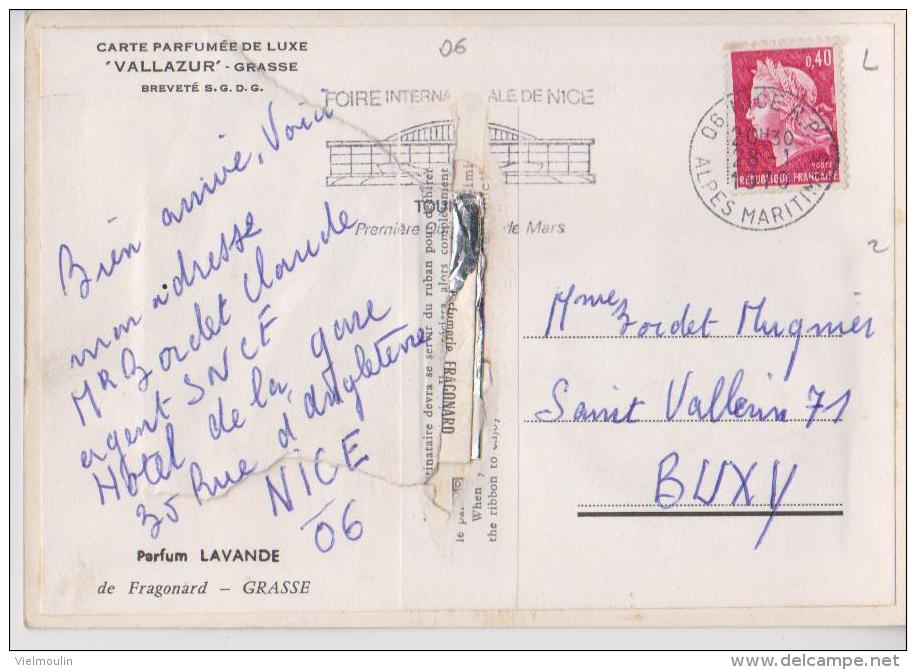 CARTE PARFUMÉE DE LUXE
"VALLAZUR" - GRASSE
BREVETÉ S. G. D. G.
06
L
2
FOIRE INTERNA ALE DE NICE
TOU
Première de Mars
0,40
POSTES
RÉPUBLIQUE FRANÇAISE
06 NICE R.P.
20H30
ALPES MARITIM
Bien arrivé, Voici
mon adresse
Mr Bordet Claude
agent SNCF
Hotel de la gare
35 Rue d'Angleterre
NICE
06
tinataire devra se servir du ruban pour déchirer
alors complètement
Parfumerie FRAGONARD
When
the ribbon to enjoy
Mmes Bordet Mugnier
Saint Vallerin 71
BUXY
Parfum LAVANDE
de Fragonard – GRASSE
Vielmoulin
www.delcampe.net